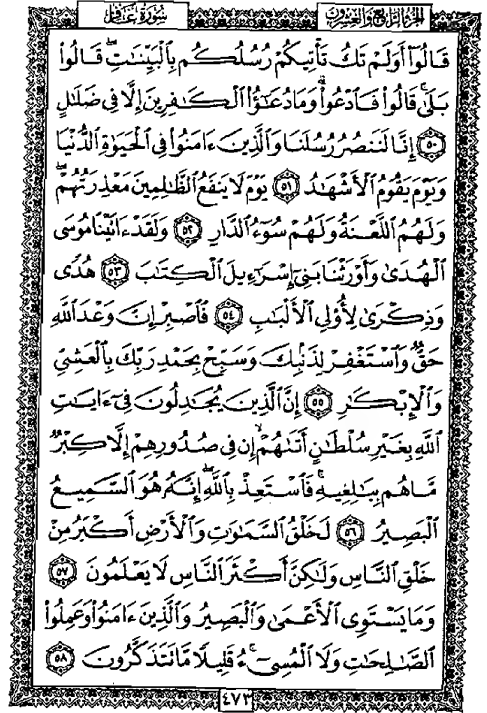 سُورَةُ غَافِرٍ الجُزءُ الرَّابِعُ وَالعِشرُون
قَالُوٓا۟ أَوَلَمْ تَكُ تَأْتِيكُمْ رُسُلُكُم بِٱلْبَيِّنَٰتِ ۖ قَالُوا۟
بَلَىٰ ۚ قَالُوا۟ فَٱدْعُوا۟ ۗ وَمَا دُعَٰٓؤُا۟ ٱلْكَٰفِرِينَ إِلَّا فِى ضَلَٰلٍ
٥٠ إِنَّا لَنَنصُرُ رُسُلَنَا وَٱلَّذِينَ ءَامَنُوا۟ فِى ٱلْحَيَوٰةِ ٱلدُّنْيَا
وَيَوْمَ يَقُومُ ٱلْأَشْهَٰدُ ٥١ يَوْمَ لَا يَنفَعُ ٱلظَّٰلِمِينَ مَعْذِرَتُهُمْ ۖ
وَلَهُمُ ٱللَّعْنَةُ وَلَهُمْ سُوٓءُ ٱلدَّارِ ٥٢ وَلَقَدْ ءَاتَيْنَا مُوسَى
ٱلْهُدَىٰ وَأَوْرَثْنَا بَنِىٓ إِسْرَٰٓءِيلَ ٱلْكِتَٰبَ ٥٣ هُدًى
وَذِكْرَىٰ لِأُو۟لِى ٱلْأَلْبَٰبِ ٥٤ فَٱصْبِرْ إِنَّ وَعْدَ ٱللَّهِ
حَقٌّ وَٱسْتَغْفِرْ لِذَنۢبِكَ وَسَبِّحْ بِحَمْدِ رَبِّكَ بِٱلْعَشِىِّ
وَٱلْإِبْكَٰرِ ٥٥ إِنَّ ٱلَّذِينَ يُجَٰدِلُونَ فِىٓ ءَايَٰتِ
ٱللَّهِ بِغَيْرِ سُلْطَٰنٍ أَتَىٰهُمْ ۙ إِن فِى صُدُورِهِمْ إِلَّا كِبْرٌ
مَّا هُم بِبَٰلِغِيهِ ۚ فَٱسْتَعِذْ بِٱللَّهِ ۖ إِنَّهُۥ هُوَ ٱلسَّمِيعُ
ٱلْبَصِيرُ ٥٦ لَخَلْقُ ٱلسَّمَٰوَٰتِ وَٱلْأَرْضِ أَكْبَرُ مِنْ
خَلْقِ ٱلنَّاسِ وَلَٰكِنَّ أَكْثَرَ ٱلنَّاسِ لَا يَعْلَمُونَ ٥٧
وَمَا يَسْتَوِى ٱلْأَعْمَىٰ وَٱلْبَصِيرُ وَٱلَّذِينَ ءَامَنُوا۟ وَعَمِلُوا۟
ٱلصَّٰلِحَٰتِ وَلَا ٱلْمُسِىٓءُ ۚ قَلِيلًا مَّا تَتَذَكَّرُونَ ٥٨
٤٧٣